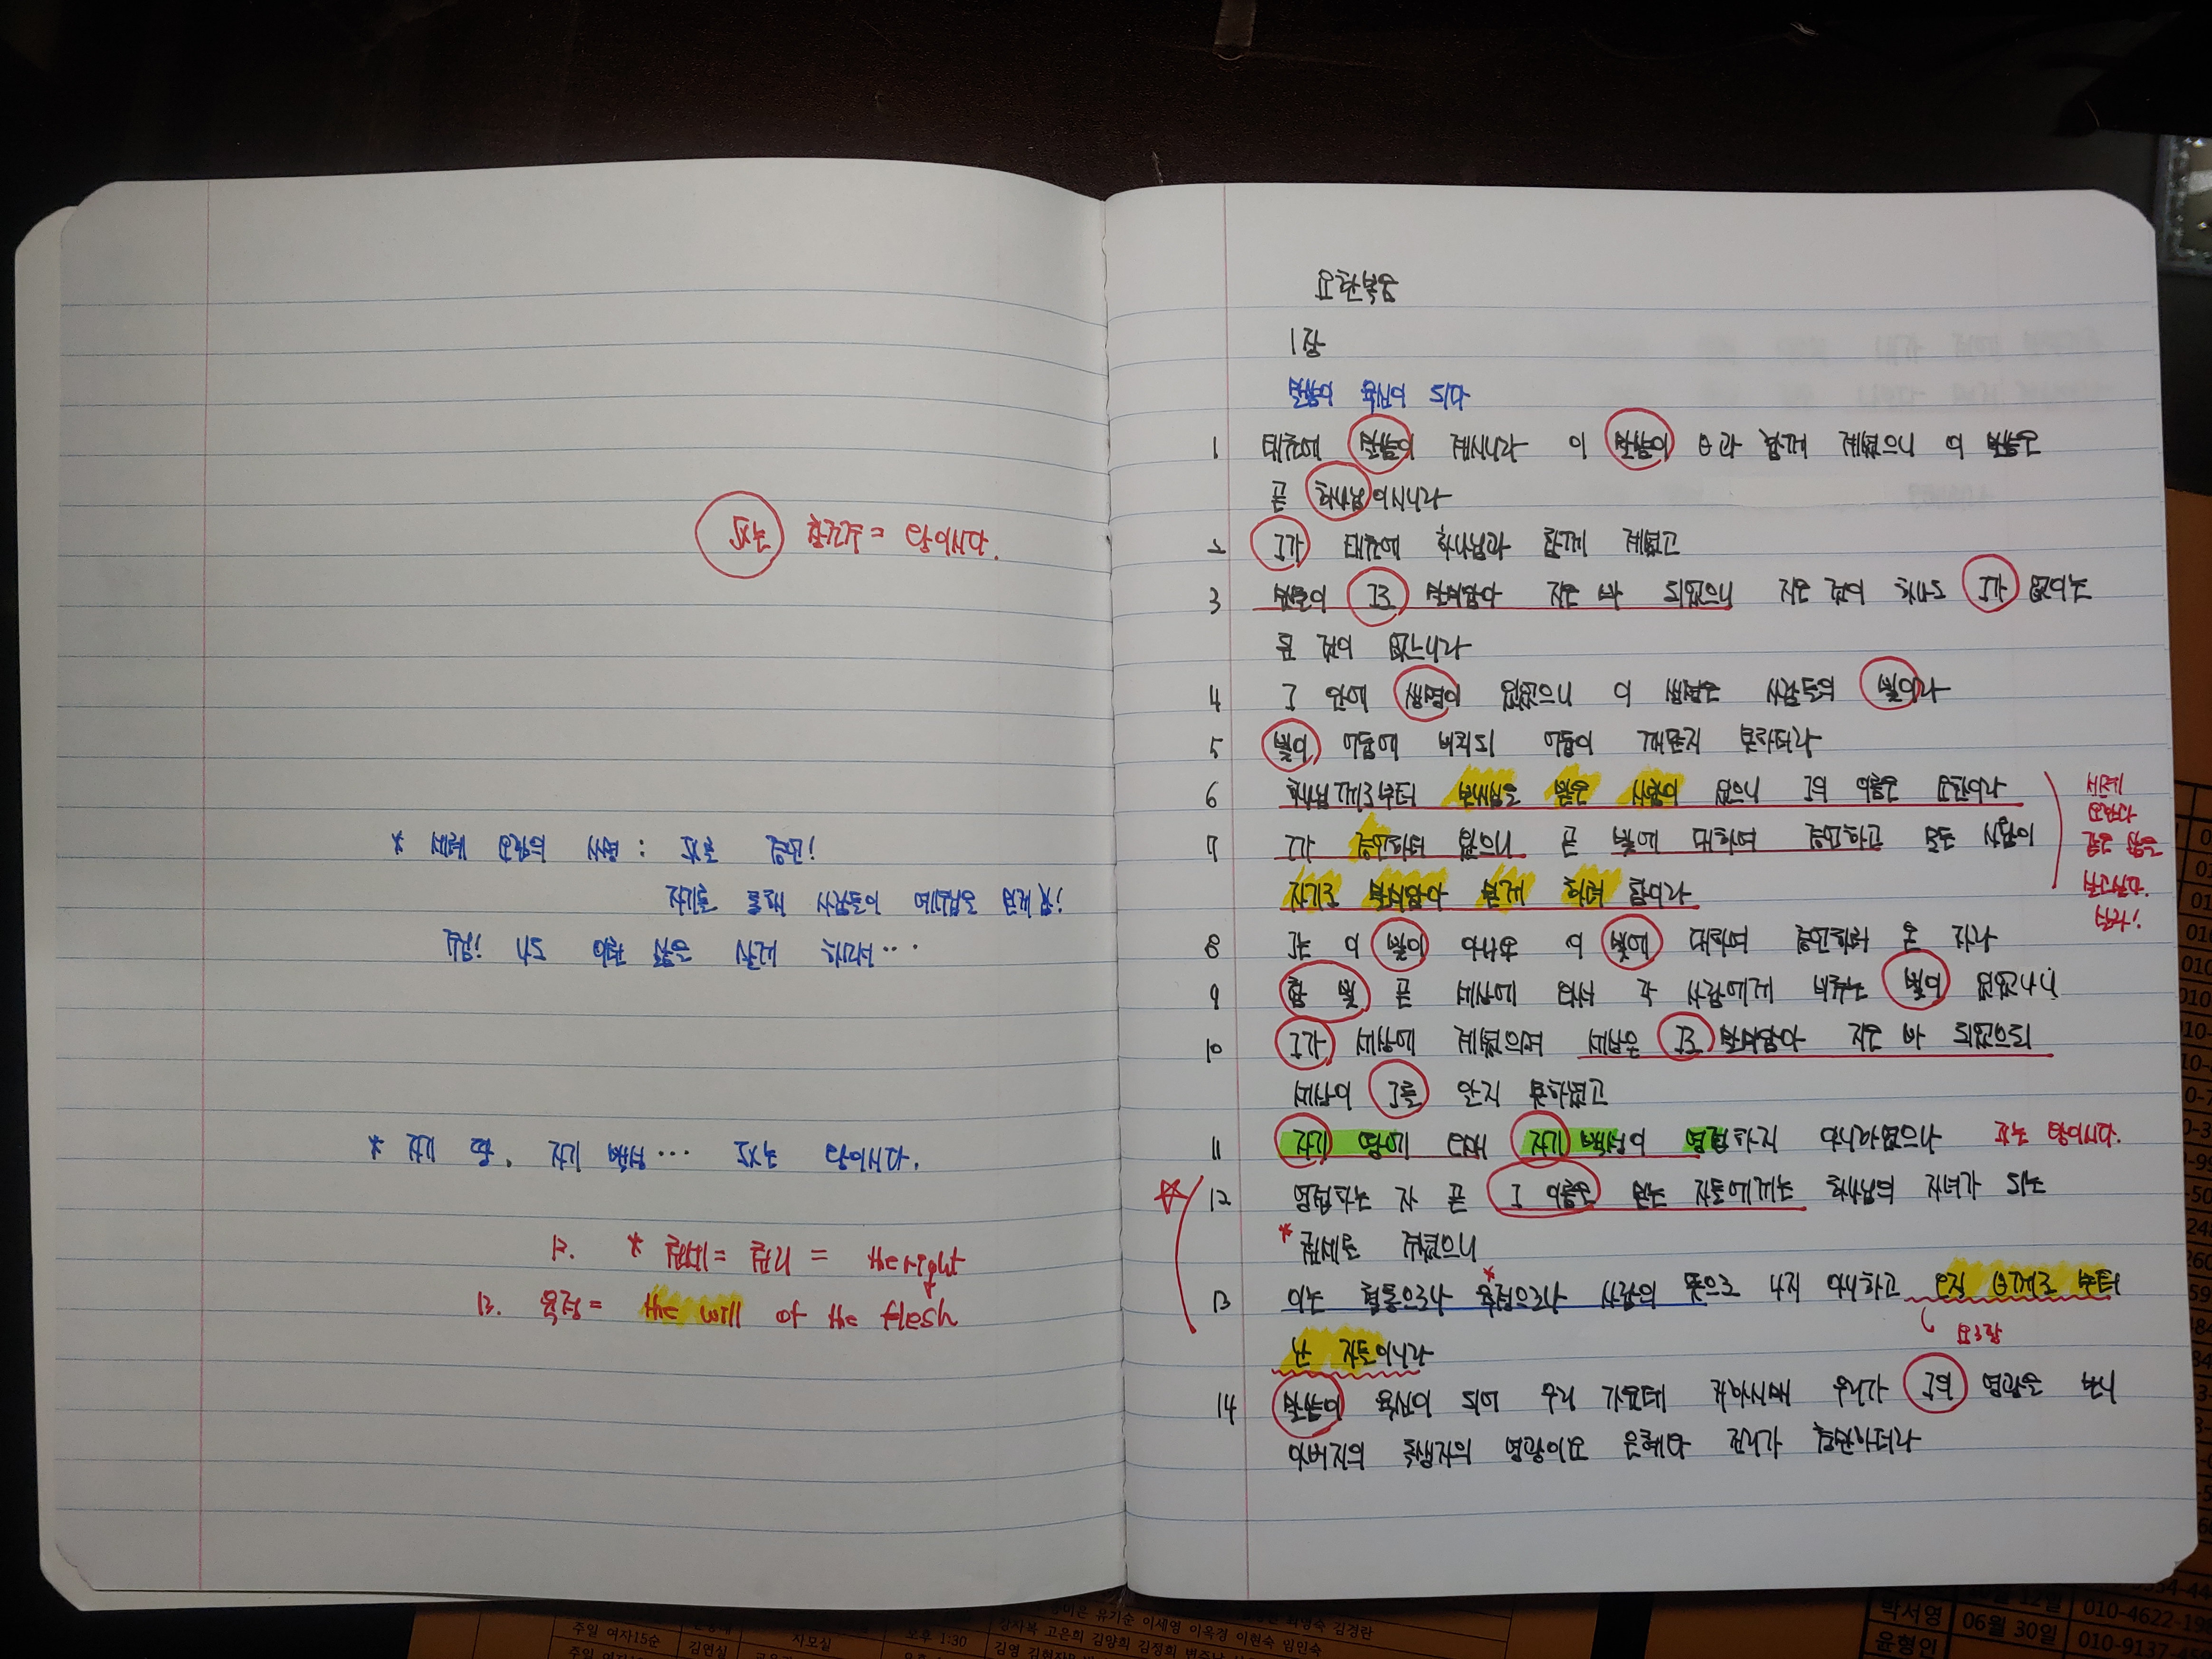 창조주 = 왕이시다.
* 세례 요한의 사명 : 증언!
자기를 통해 사람들이 예수님을 믿게 함!
주님! 나도 이런 삶을 살게 하소서…
* 자기 땅, 자기 백성… 왕이시다.
12. * 권세 = 권리 = the right
13. 육정 = the will of the flesh
요한복음
1장
말씀이 육신이 되다
1 태초에 말씀이 계시니라 이 말씀이 과 함께 계셨으니 이 말씀은
곧 하나님이시니라
2 그가 태초에 하나님과 함께 계셨고
3 만물이 그로 말미암아 지은 바 되었으니 지은 것이 하나도 그가 없이는
된 것이 없느니라
4 그 안에 생명이 있었으니 이 생명은 사람들의 빛이라
5 빛이 어둠에 비치되 어둠이 깨닫지 못하더라
6 하나님께로부터 보내심을 받은 사람이 있으니 그의 이름은 요한이라
7 그가 증언하러 왔으니 곧 빛에 대하여 증언하고 모든 사람이
자기로 말미암아 믿게 하려 함이라
세례
요한과
같은 삶을
살고싶다.
살자!
8 그는 이 빛이 아니요 이 빛에 대하여 증언하러 온 자라
9 참 빛 곧 세상에 와서 각 사람에게 비추는 빛이 있었나니
10 그가 세상에 계셨으며 세상은 그로 말미암아 지은 바 되었으되
세상이 그를 알지 못하였고
11 자기 땅에 오매 자기 백성이 영접하지 아니하였으나 왕이시다.
12 영접하는 자 곧 그 이름을 믿는 자들에게는 하나님의 자녀가 되는
* 권세를 주셨으니
13 이는 혈통으로나 육정으로나 사람의 뜻으로 나지 아니하고 오직 께로 부터
요3장
난 자들이니라
14 말씀이 육신이 되어 우리 가운데 거하시매 우리가 그의 영광을 보니
아버지의 독생자의 영광이요 은혜와 진리가 충만하더라
주일 여자15순 김연실 오후 1:30
유기순 이세영 이옥경 이현숙 임인숙
고은희 김양희 김정희
박서영 06월 30일 010-4622-19
윤형인 010-9137-4